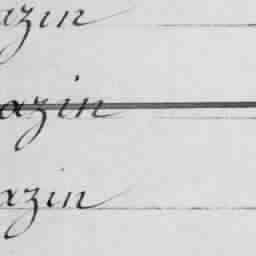 azin
azin
azin